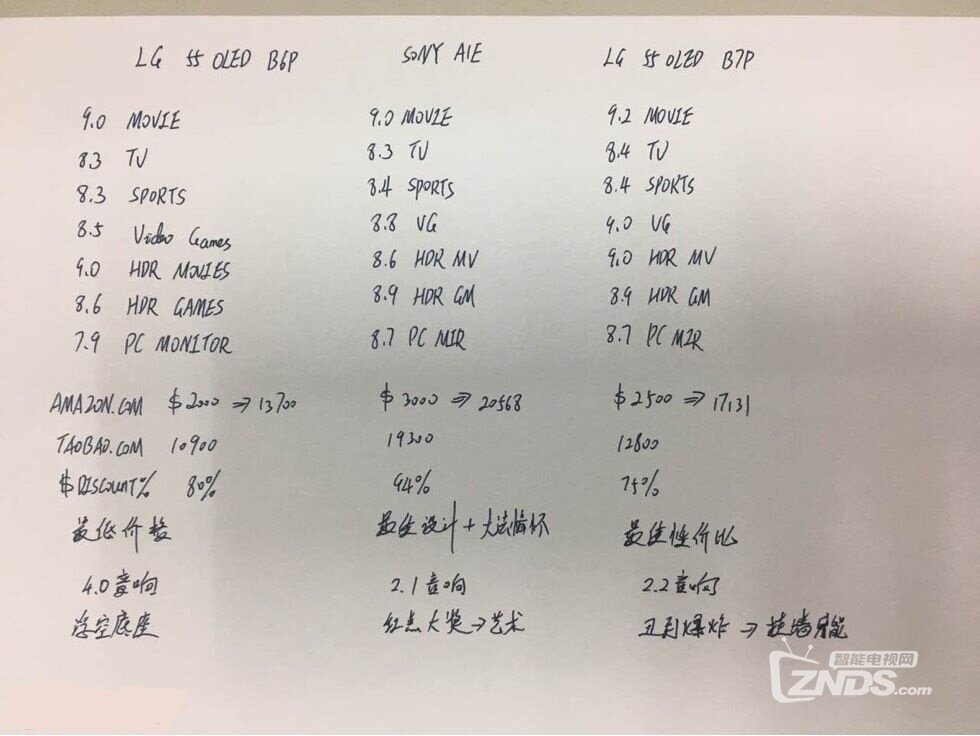 LG 55 OLED B6P SONY A1E LG 55 OLED B7P
9.0 MOVIE 9.0 MOVIE 9.2 MOVIE
8.3 TV 8.3 TV 8.4 TV
8.3 SPORTS 8.4 SPORTS 8.4 SPORTS
8.5 Video Games 8.8 VG 9.0 VG
9.0 HDR MOVIES 8.6 HDR MV 9.0 HDR MV
8.6 HDR GAMES 8.9 HDR GM 8.9 HDR GM
7.9 PC MONITOR 8.7 PC MIR 8.7 PC MIR
AMAZON.COM $2000 ⇒ 13700 $3000 ⇒ 20568 $2500 ⇒ 17131
TAOBAO.COM 10900 19300 12800
$DISCOUNT% 80% 94% 75%
最低价格 最佳设计+大法情怀 最佳性价比
4.0音响 2.1音响 2.2音响
悬空底座 红点大奖→艺术 丑到爆炸⇒挂墙
智能电视网
ZNDS.com